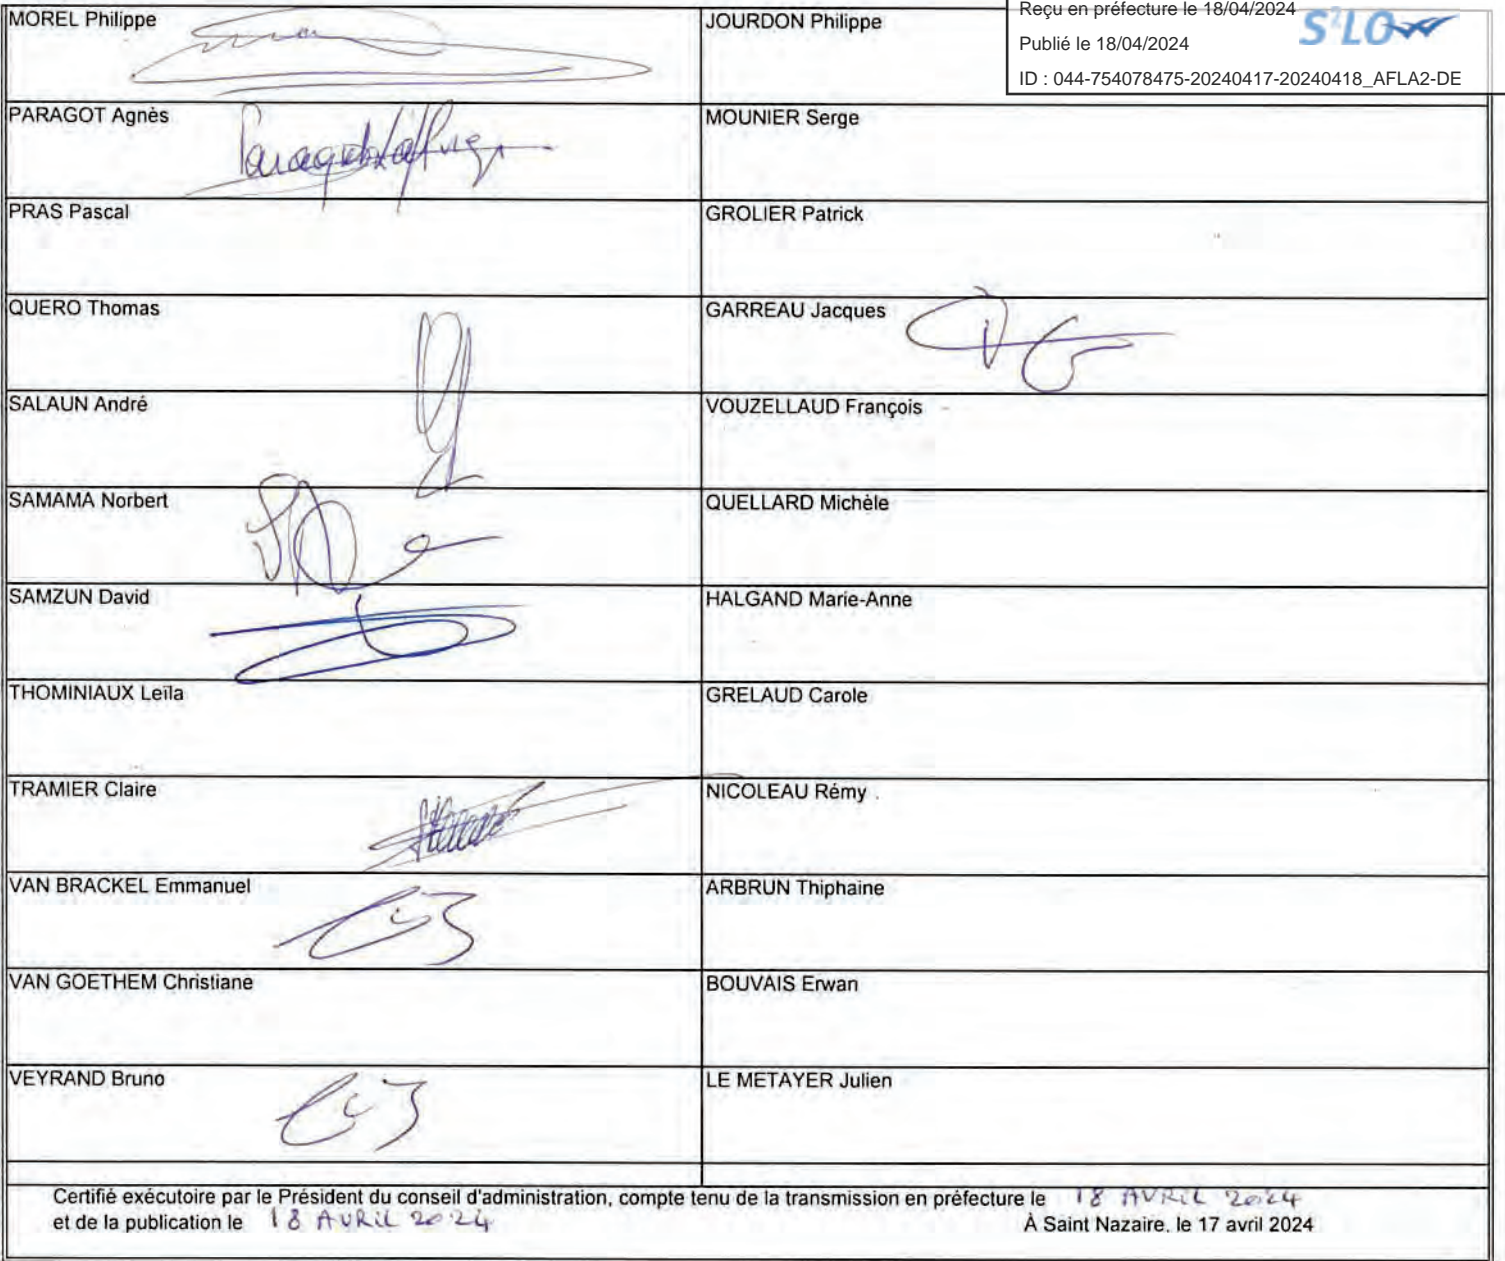 MOREL Philippe
JOURDON Philippe
Reçu en préfecture le 18/04/2024
Publié le 18/04/2024
S²LO
ID : 044-754078475-20240417-20240418_AFLA2-DE
PARAGOT Agnès
MOUNIER Serge
PRAS Pascal
GROLIER Patrick
QUERO Thomas
GARREAU Jacques
SALAUN André
VOUZELLAUD François
SAMAMA Norbert
QUELLARD Michèle
SAMZUN David
HALGAND Marie-Anne
THOMINIAUX Leïla
GRELAUD Carole
TRAMIER Claire
NICOLEAU Rémy
VAN BRACKEL Emmanuel
ARBRUN Thiphaine
VAN GOETHEM Christiane
BOUVAIS Erwan
VEYRAND Bruno
LE METAYER Julien
Certifié exécutoire par le Président du conseil d'administration, compte tenu de la transmission en préfecture le 18 AVRIL 2024
et de la publication le 18 AVRIL 2024
À Saint Nazaire, le 17 avril 2024